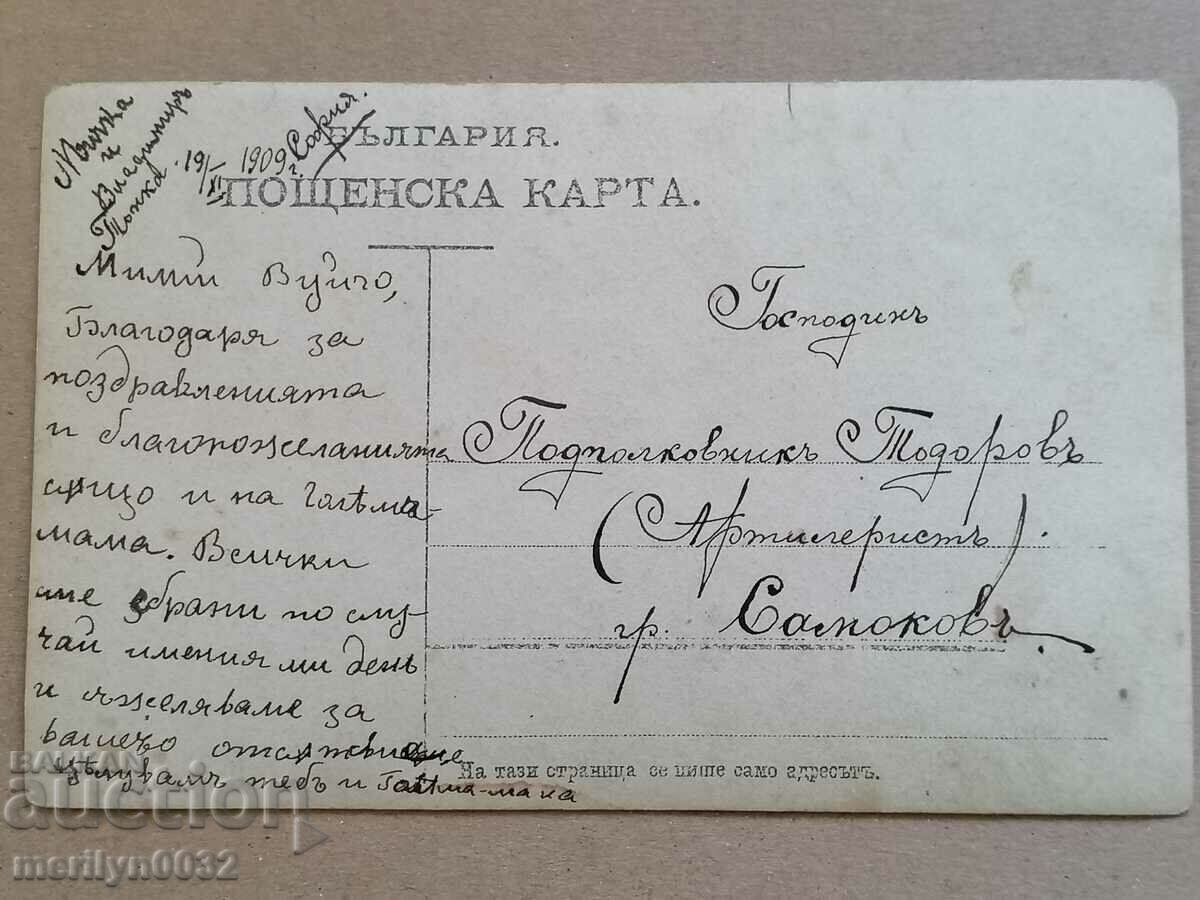 БЪЛГАРИЯ.
ПОЩЕНСКА КАРТА.
19/XI 1909 г. София.
и
Владимиръ
Тонка
Мили Вуйчо,
Благодаря за
поздравленията
и благопожеланията
също и на Голѣма-
мама. Всички
сме збрани по слу-
чай имения ми день
и съжеляваме за
вашето отсѫтствие
Цѣлувамъ тебъ и Голѣма-мама
Господинъ
Подполковникъ Тодоровъ
(Артилеристъ).
гр. Самоковъ
На тази страница се пише само адресътъ.
BALKAN
auction
merilyn0032